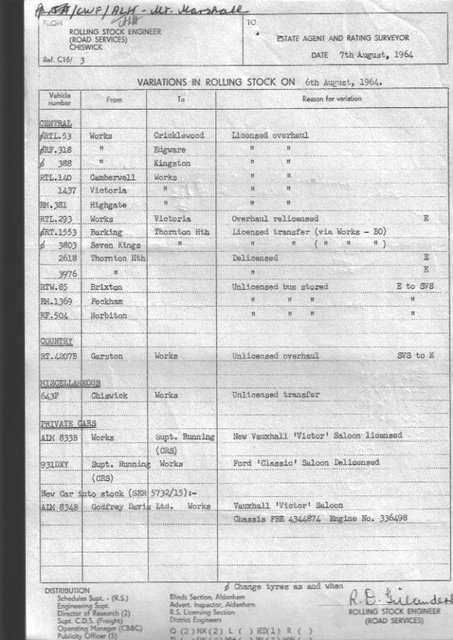 /CWF/BLH - Mr. Marshall
FROM
ROLLING STOCK ENGINEER
(ROAD SERVICES)
CHISWICK
Ref. C16/ 3
TO
ESTATE AGENT AND RATING SURVEYOR
DATE 7th August, 1964
VARIATIONS IN ROLLING STOCK ON 6th August, 1964.
Vehicle number From To Reason for variation
CENTRAL
RTL.53 Works Cricklewood Licensed overhaul
RF.318 " Edgware " "
388 " Kingston " "
RTL.140 Camberwell Works " "
1437 Victoria " " "
RM.381 Highgate " " "
RTL.293 Works Victoria Overhaul relicensed E
RT.1553 Barking Thornton Hth Licensed transfer (via Works - BO)
3803 Seven Kings " " " ( " " " )
2618 Thornton Hth Delicensed E
3976 " " E
RTW.85 Brixton Unlicensed bus stored E to SVS
RM.1369 Peckham " " " "
RF.504 Norbiton " " " "
COUNTRY
RT.4207B Garston Works Unlicensed overhaul SVS to E
MISCELLANEOUS
643F Chiswick Works Unlicensed transfer
PRIVATE CARS
AIM 833B Works Supt. Running New Vauxhall 'Victor' Saloon licensed
(CRS)
931DXY Supt. Running Works Ford 'Classic' Saloon Delicensed
(CRS)
New Car into stock (SER 5732/15):-
AIM 834B Godfrey Davis Ltd. Works Vauxhall 'Victor' Saloon
Chassis FBE 4344874 Engine No. 336498
Change tyres as and when
DISTRIBUTION
Schedules Supt. - (R.S.)
Engineering Supt.
Director of Research (2)
Supt. C.D.S. (Freight)
Operating Manager (CB&C)
Publicity Officer (5)
Blinds Section, Aldenham
Advert. Inspector, Aldenham
R.S. Licensing Section
District Engineers
Q (2) NX(2) L ( ) HI(1) R ( )
ROLLING STOCK ENGINEER
(ROAD SERVICES)